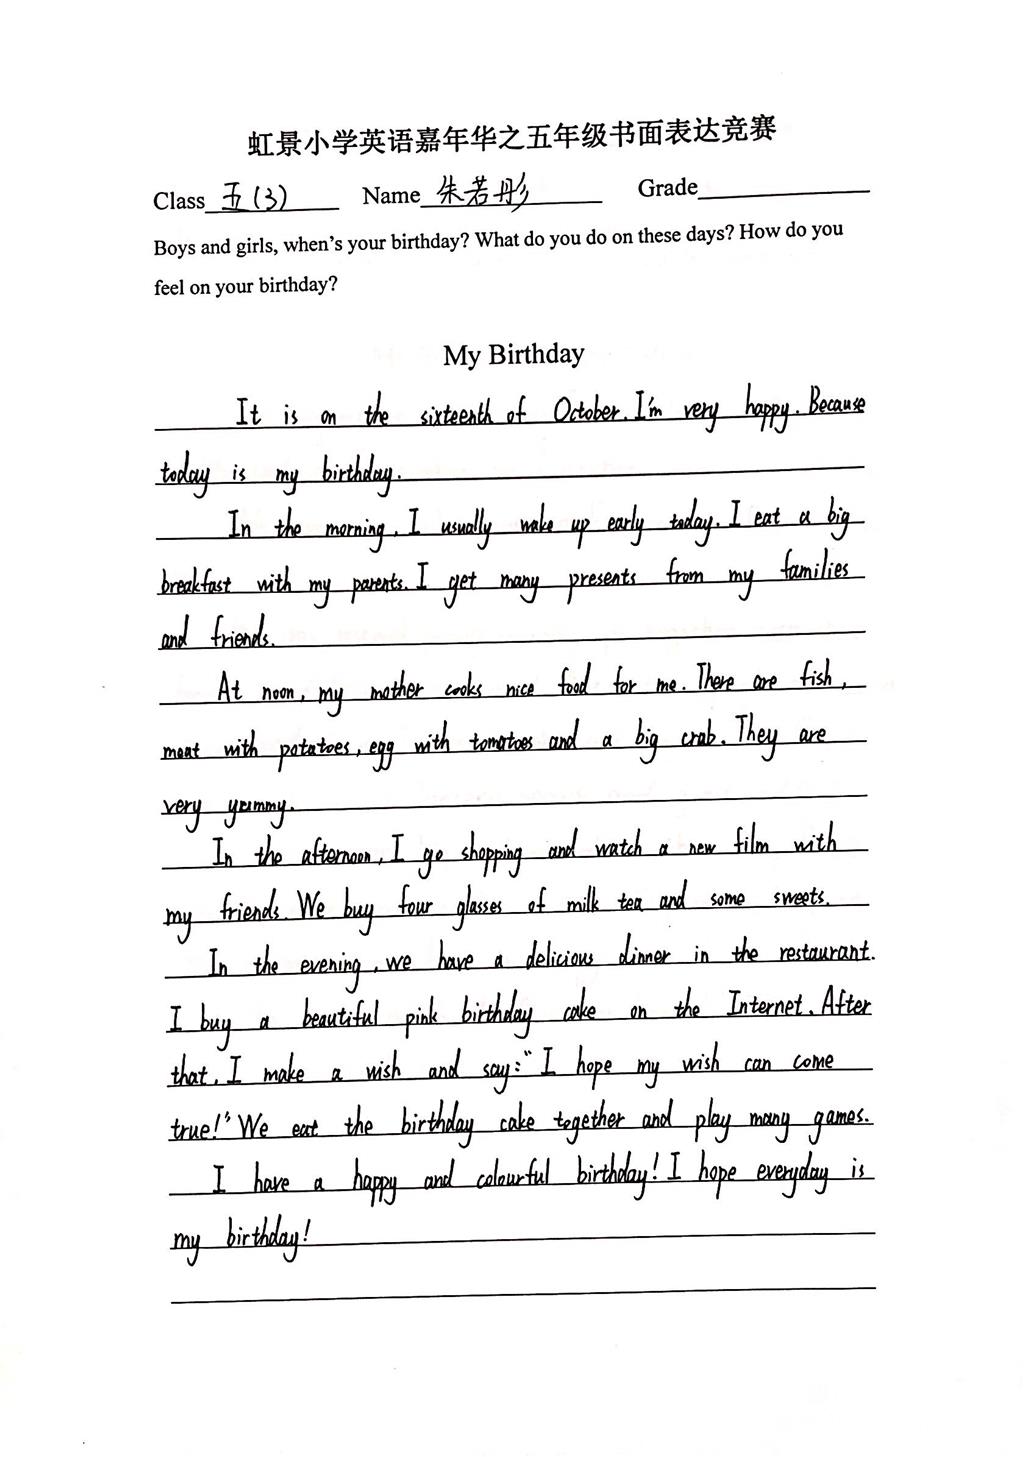 虹景小学英语嘉年华之五年级书面表达竞赛
Class 五(3) Name 朱若彤 Grade
Boys and girls, when's your birthday? What do you do on these days? How do you
feel on your birthday?
My Birthday
It is on the sixteenth of October. I'm very happy. Because
today is my birthday.
In the morning, I usually wake up early today. I eat a big
breakfast with my parents. I get many presents from my families
and friends.
At noon, my mother cooks nice food for me. There are fish,
meat with potatoes, egg with tomatoes and a big crab. They are
very yummy.
In the afternoon, I go shopping and watch a new film with
my friends. We buy four glasses of milk tea and some sweets.
In the evening, we have a delicious dinner in the restaurant.
I buy a beautiful pink birthday cake on the Internet. After
that, I make a wish and say:"I hope my wish can come
true!" We eat the birthday cake together and play many games.
I have a happy and colourful birthday! I hope everyday is
my birthday!